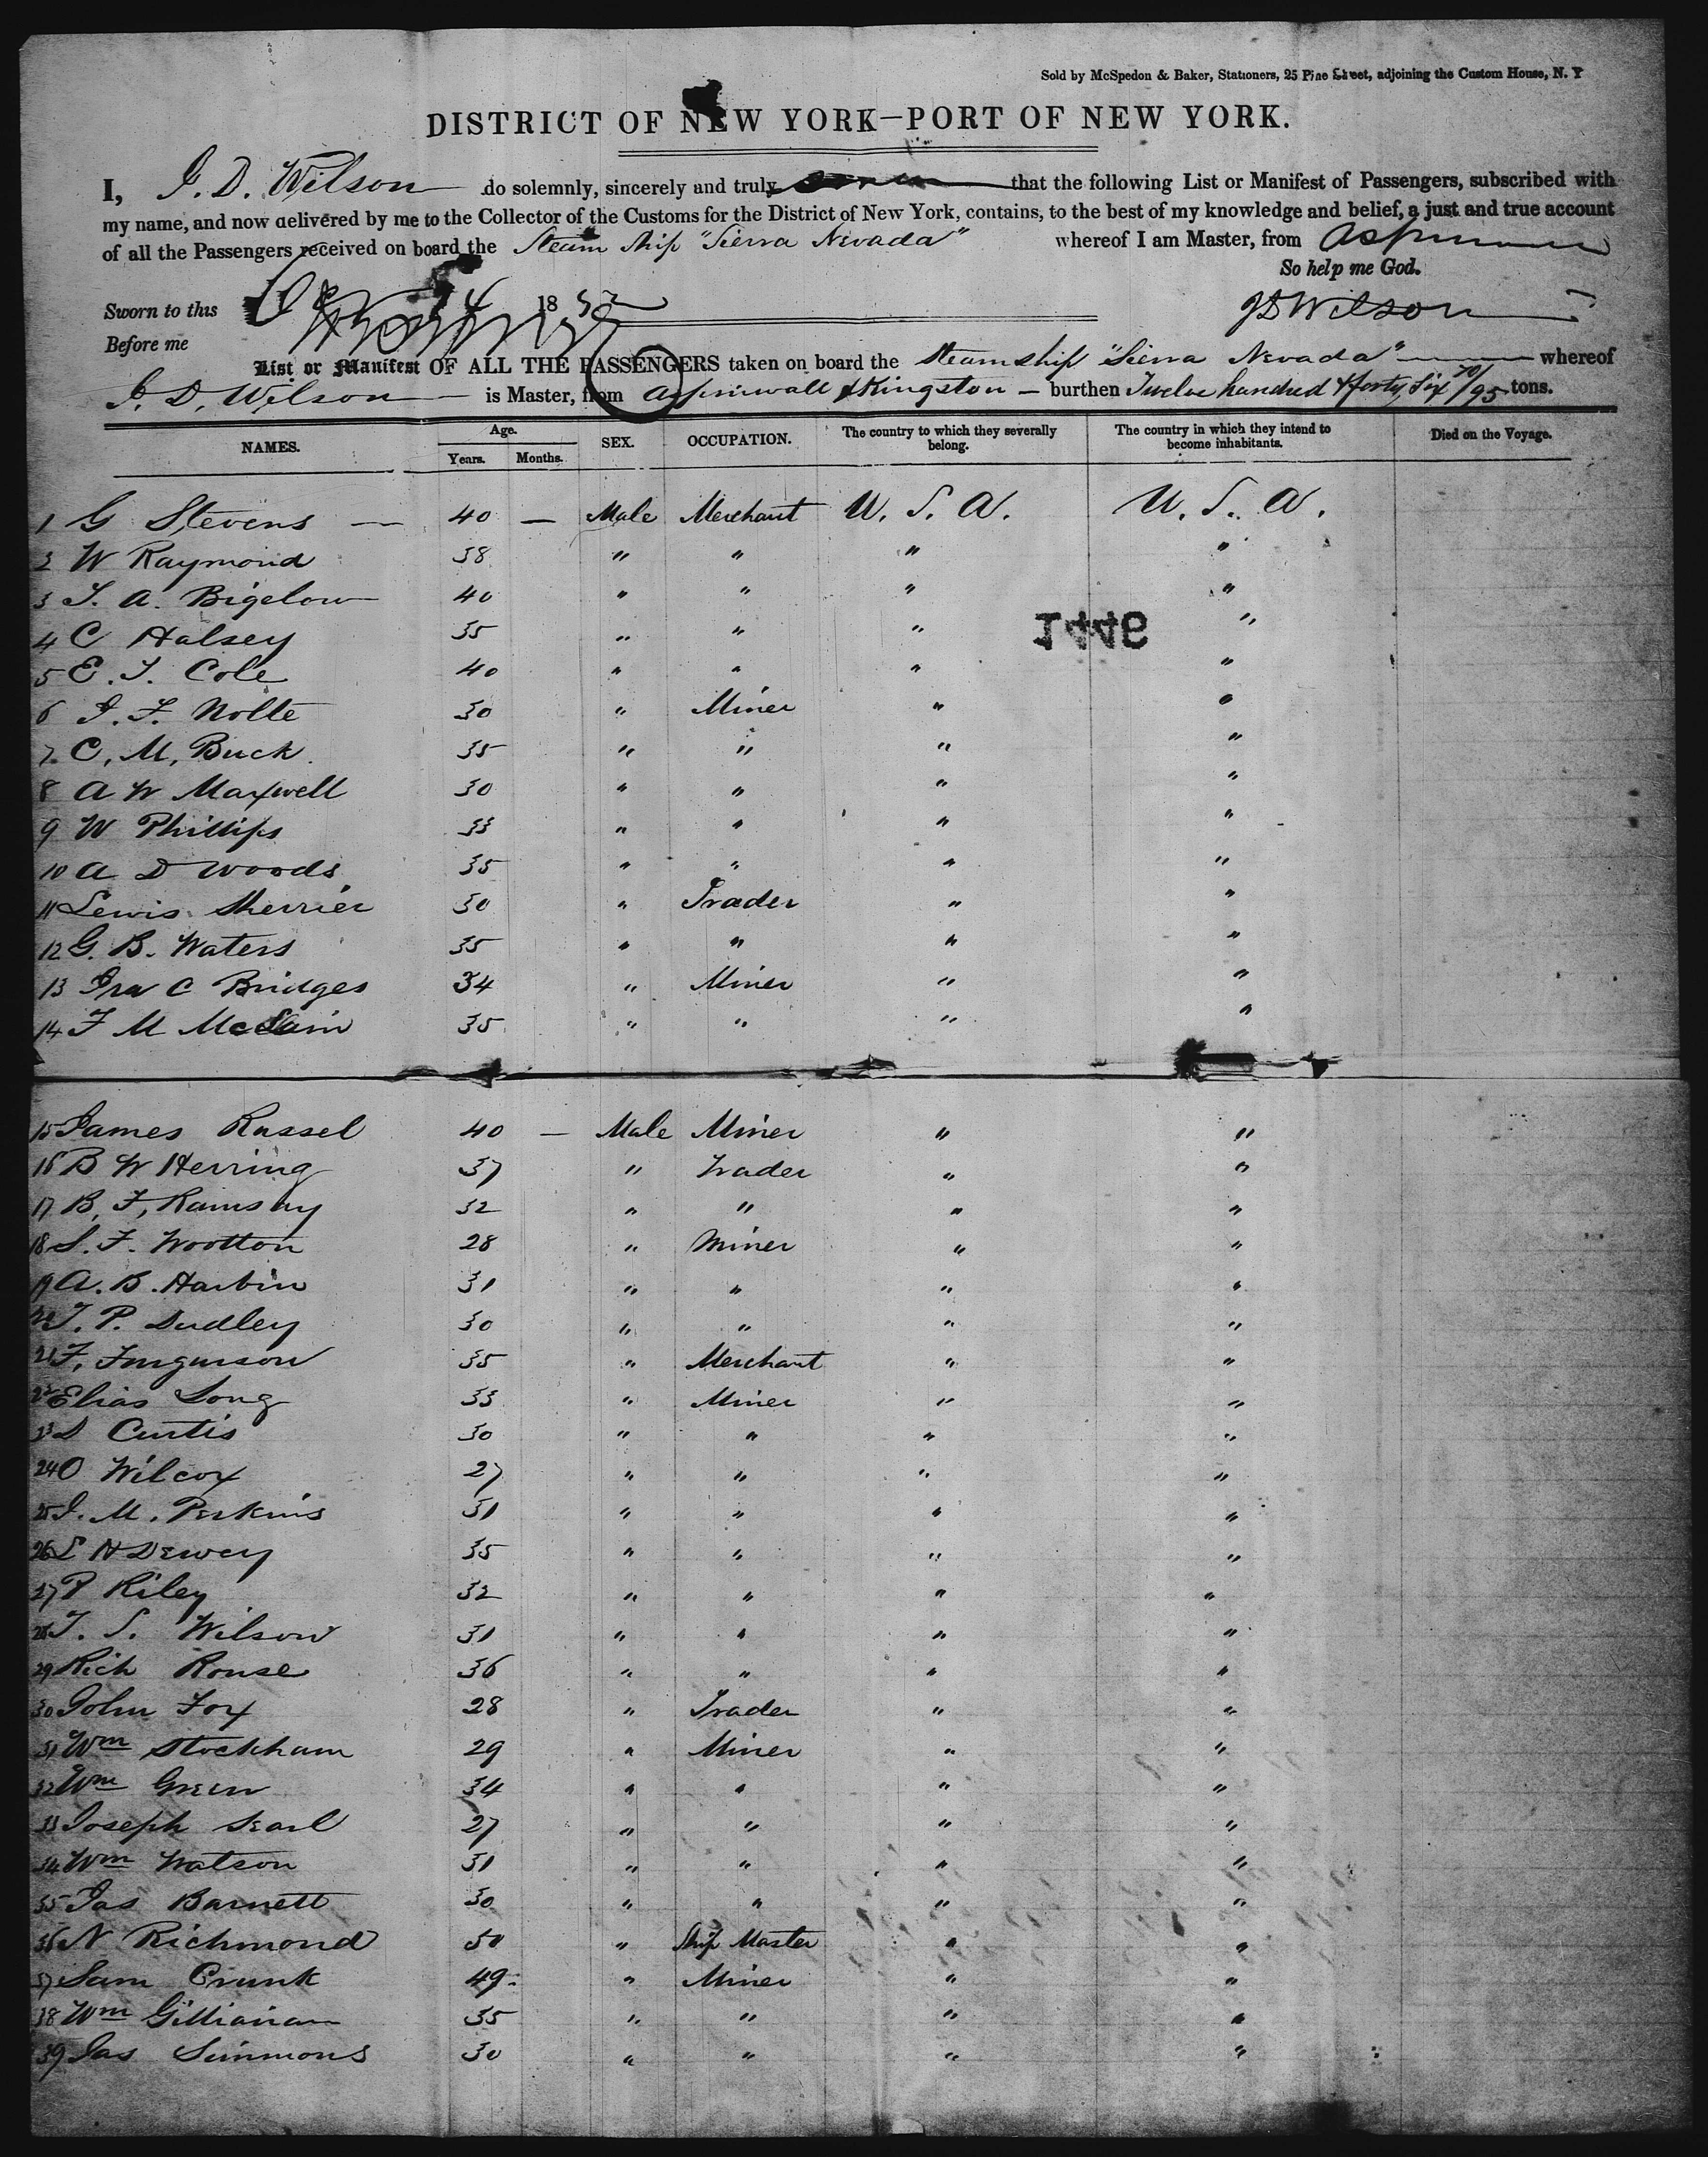 Sold by McSpedon & Baker, Stationers, 25 Pine Street, adjoining the Custom House, N. Y
DISTRICT OF NEW YORK—PORT OF NEW YORK.
I, J. D. Wilson do solemnly, sincerely and truly that the following List or Manifest of Passengers, subscribed with
my name, and now delivered by me to the Collector of the Customs for the District of New York, contains, to the best of my knowledge and belief, a just and true account
of all the Passengers received on board the Steam Ship "Sierra Nevada" whereof I am Master, from Aspinwall
So help me God.
Sworn to this 24 1852 JD Wilson
Before me
List or Manifest OF ALL THE PASSENGERS taken on board the Steamship "Sierra Nevada" whereof
J. D. Wilson is Master, from Aspinwall & Kingston — burthen Twelve hundred & forty, Six 70/95 tons.
NAMES. Age. Years. Months. SEX. OCCUPATION. The country to which they severally belong. The country in which they intend to become inhabitants. Died on the Voyage.
1 G Stevens — 40 — Male Merchant U. S. A. U. S. A.
2 W Raymond 38 " " " "
3 T. A. Bigelow 40 " " " "
1446
4 C Halsey 35 " " " "
5 E. T. Cole 40 " " " "
6 J. F. Nolte 30 " Miner " "
7. C, M, Buck. 35 " " " "
8 A W Maxwell 30 " " " "
9 W Phillips 33 " " " "
10 A D Woods 35 " " " "
11 Lewis Sherrier 30 " Trader " "
12 G. B. Waters 35 " " " "
13 Ira C Bridges 34 " Miner " "
14 F M McClain 35 " " " "
15 James Russel 40 — Male Miner " "
16 B W Herring 37 " Trader " "
17 B, F, Ramsay 32 " " " "
18 S. F. Wootton 28 " Miner " "
19 A. B. Harbin 31 " " " "
20 T. P. Dudley 30 " " " "
21 F. Furguson 35 " Merchant " "
22 Elias Long 33 " Miner " "
23 D Curtis 30 " " " "
24 O Wilcox 27 " " " "
25 J. M. Perkins 31 " " " "
26 L H Dewey 35 " " " "
27 P Riley 32 " " " "
28 T. S. Wilson 31 " " " "
29 Rich Rouse 36 " " " "
30 John Fox 28 " Trader " "
31 Wm Stockham 29 " Miner " "
32 Wm Green 34 " " " "
33 Joseph Searl 27 " " " "
34 Wm Watson 31 " " " "
35 Jas Barnett 30 " " " "
36 N Richmond 50 " Ship Master " "
37 Sam Crunk 49 " Miner " "
38 Wm Gilliaman 35 " " " "
39 Jas Simmons 30 " " " "